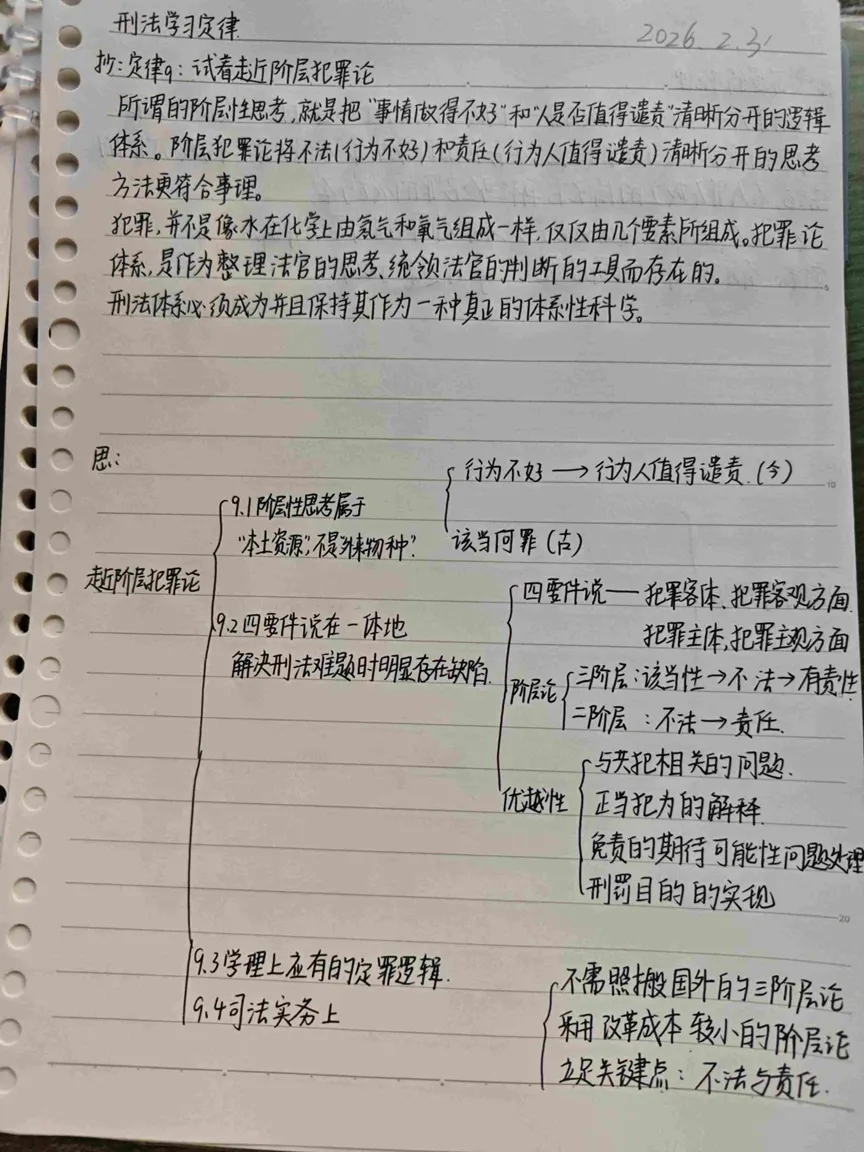 刑法学习定律
2026.2.3
抄:定律9:试着走近阶层犯罪论
所谓的阶层性思考,就是把“事情做得不好”和“人是否值得谴责”清晰分开的逻辑
体系。阶层犯罪论将不法(行为不好)和责任(行为人值得谴责)清晰分开的思考
方法更符合事理。
犯罪,并不是像水在化学上由氢气和氧气组成一样,仅仅由几个要素所组成。犯罪论
体系,是作为整理法官的思考、统领法官的判断的工具而存在的。
刑法体系必须成为并且保持其作为一种真正的体系性科学。
思:
走近阶层犯罪论
9.1阶层性思考属于
“本土资源”,不是“外来物种”.
行为不好→行为人值得谴责.(今)
该当何罪(古)
9.2四要件说在一体地
解决刑法难题时明显存在缺陷.
四要件说—犯罪客体、犯罪客观方面
犯罪主体,犯罪主观方面
阶层论
三阶层:该当性→不法→有责性
二阶层:不法→责任.
优越性
与共犯相关的问题.
正当犯为的解释.
免责的期待可能性问题处理
刑罚目的的实现
9.3学理上应有的定罪逻辑.
9.4司法实务上
不需照搬国外的三阶层论
采用改革成本较小的阶层论
立足关键点:不法与责任.